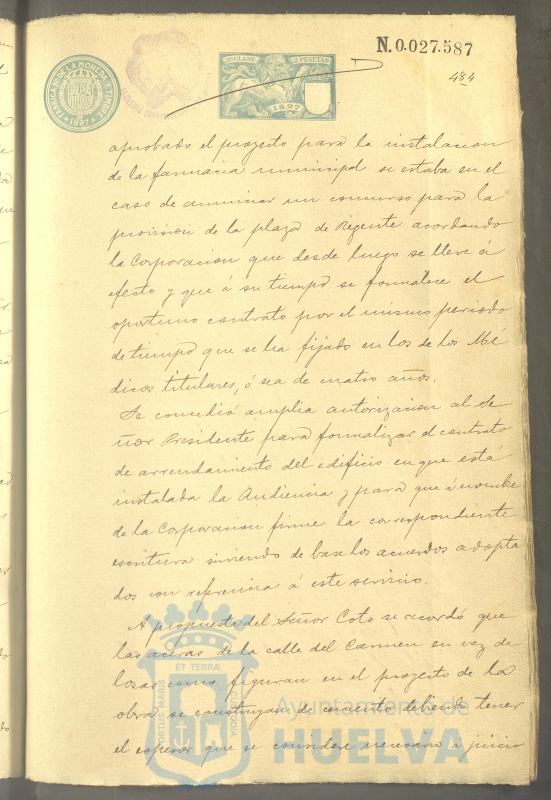 N.0.027.587
484
FABRICA DE LA MONEDA Y TIMBRE
1897
11ª CLASE 2 PESETAS
1897
aprobado el proyecto para la instalacion
de la farmacia municipal se estaba en el
caso de anunciar un concurso para la
provision de la plaza de Regente acordando
la Corporacion que desde luego se lleve á
efecto y que á su tiempo se formalice el
oportuno contrato por el mismo periodo
de tiempo que se ha fijado en los de los Mé
dicos titulares, ó sea de cuatro años.
Se concedió amplia autorizacion al Se
ñor Presidente para formalizar el contrato
de arrendamiento del edificio en que esta
instalada la Audiencia y para que á nombre
de la Corporacion firme la correspondiente
escritura sirviendo de base los acuerdos adopta
dos con referencia á este servicio.
A propuesta del Señor Coto se acordó que
las aceras de la calle del Carmen en vez de
losas como figuran en el proyecto de la
obra se construyan de cemento debiendo tener
el espesor que se considere necesario á juicio
ET TERRÆ
PORTUS MARIS
CUSTODIA
Ayuntamiento de
HUELVA